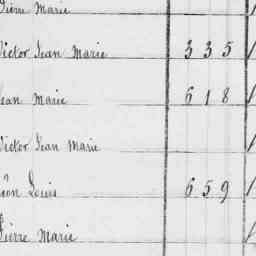 Pierre Marie
Victor Jean Marie 335
Jean Marie 618
Victor Jean Marie
Léon Louis 659
Pierre Marie